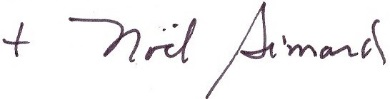 + Noël Simard